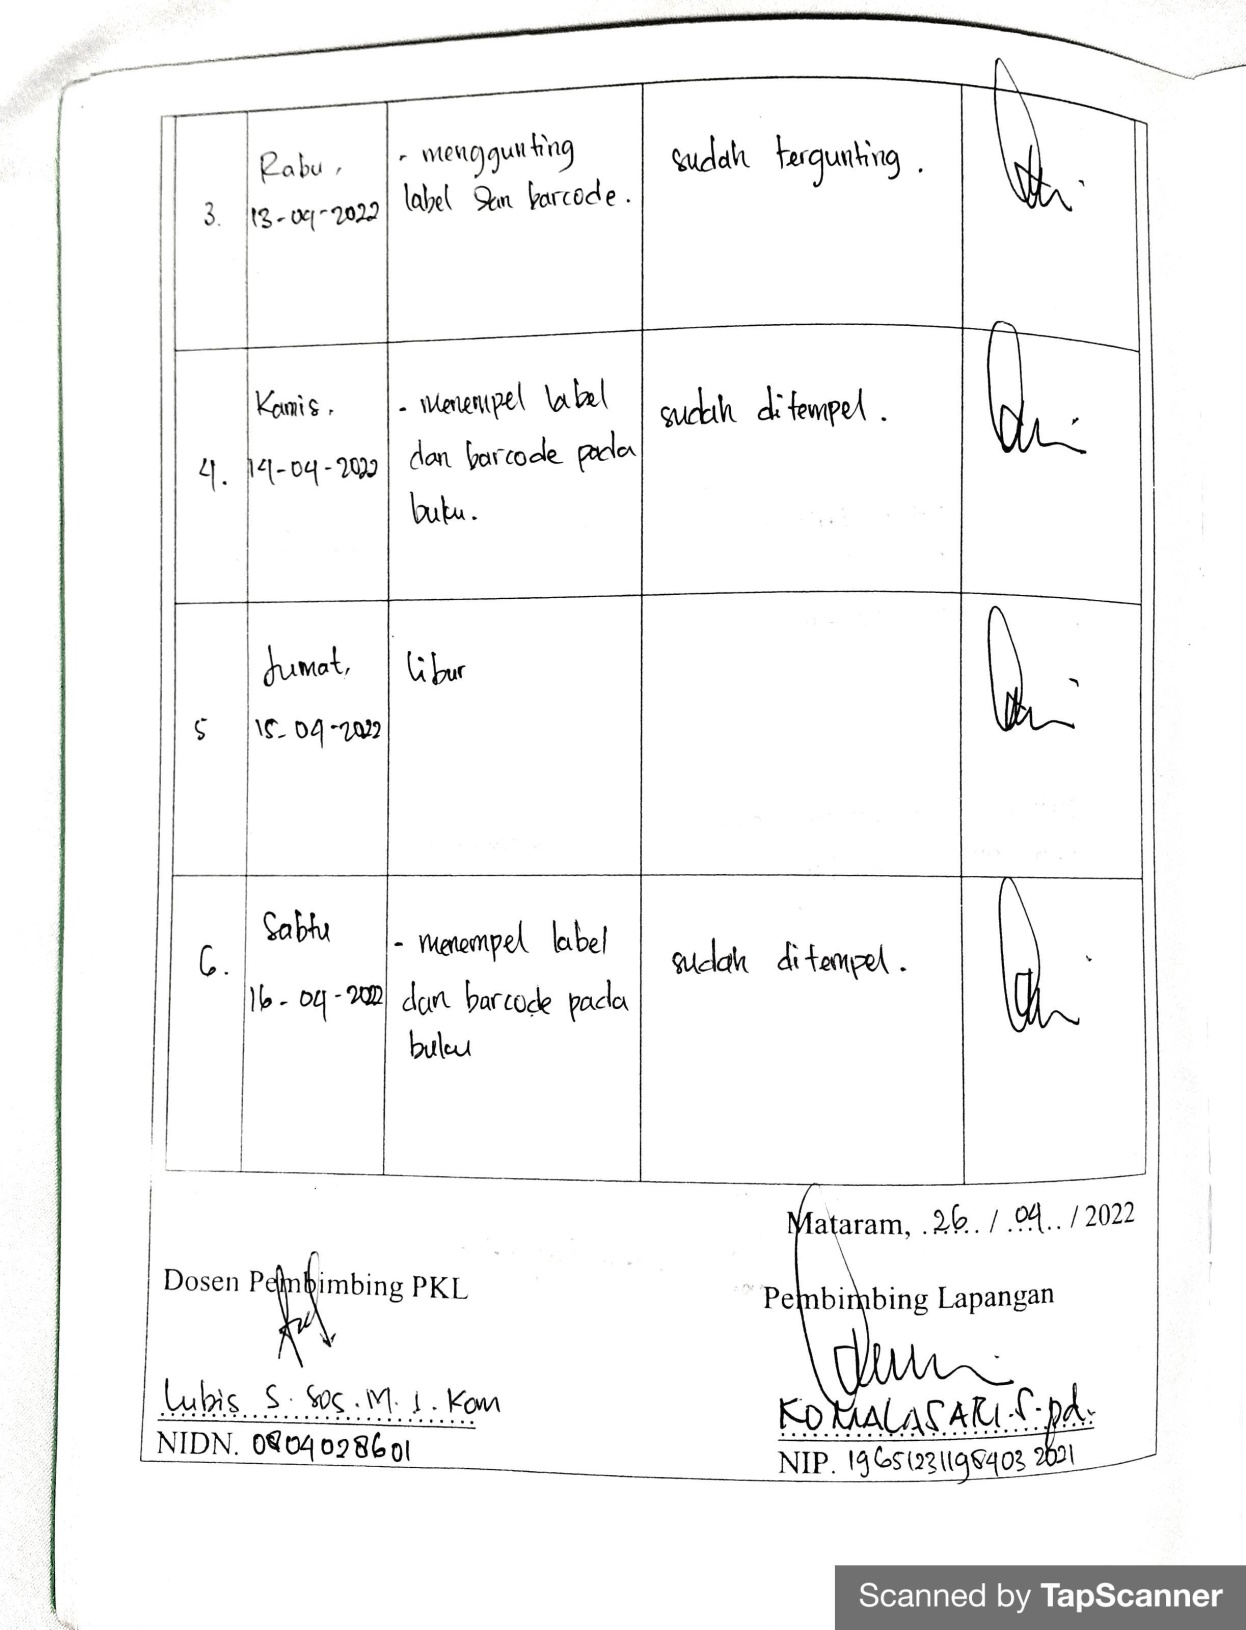 3.
Rabu,
13-04-2022
- menggunting
label dan barcode.
sudah tergunting.
4.
Kamis,
14-04-2022
- menempel label
dan barcode pada
buku.
sudah ditempel.
5
Jumat,
15-04-2022
libur
6.
Sabtu
16-04-2022
- menempel label
dan barcode pada
buku
sudah ditempel.
Mataram, 26 / 04 / 2022
Dosen Pembimbing PKL
Pembimbing Lapangan
Lubis S. Sos. M. I. Kom
KOMALASARI.S.pd.
NIDN. 0804028601
NIP. 196512311984032021
Scanned by TapScanner